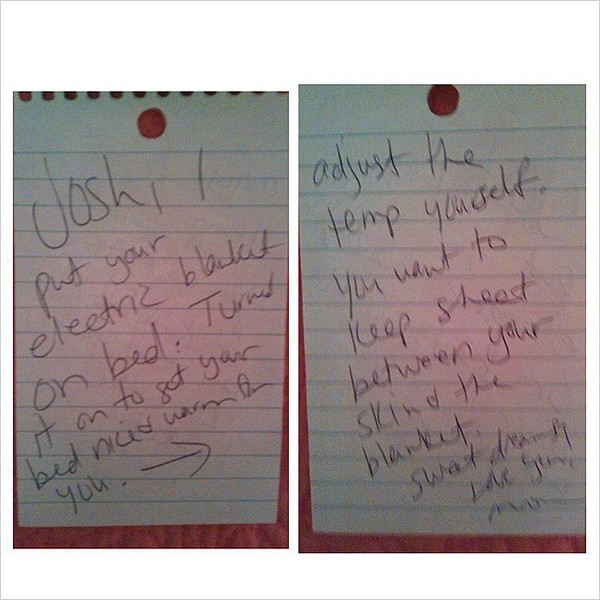 Josh, I
put your
electric blanket
on bed. Turned
it on to get your
bed nice & warm for
you.
adjust the
temp yourself.
you want to
keep sheet
between your
skin & the
blanket.
sweet dreams
Love you,
mom